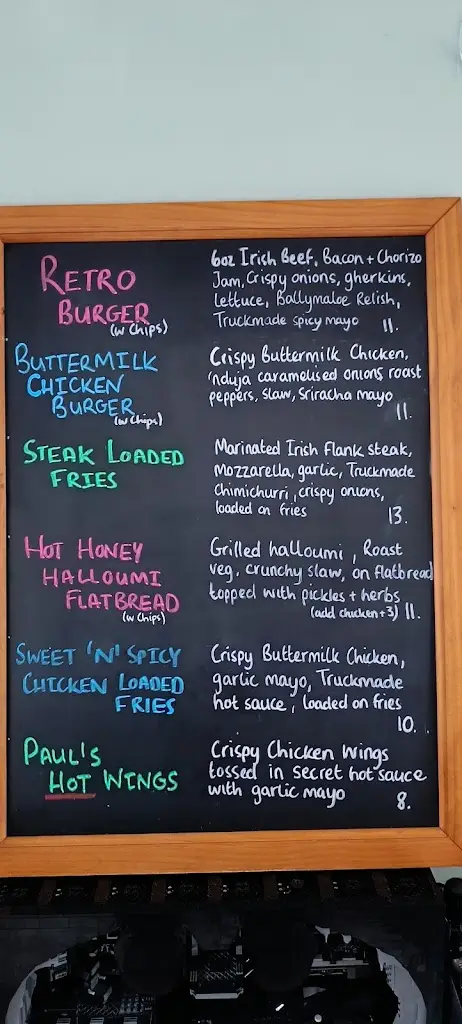 RETRO
BURGER
(w Chips)
6oz Irish Beef, Bacon + Chorizo
Jam, Crispy onions, gherkins,
lettuce, Ballymaloe Relish,
Truckmade spicy mayo 11.
BUTTERMILK
CHICKEN
BURGER
(w Chips)
Crispy Buttermilk Chicken,
'nduja caramelised onions, roast
peppers, slaw, Sriracha mayo
11.
STEAK LOADED
FRIES
Marinated Irish Flank steak,
Mozzarella, garlic, Truckmade
Chimichurri, crispy onions,
loaded on fries 13.
HOT HONEY
HALLOUMI
FLATBREAD
(w Chips)
Grilled halloumi, Roast
veg, crunchy slaw, on flatbread
topped with pickles + herbs
(add chicken +3) 11.
SWEET 'N' SPICY
CHICKEN LOADED
FRIES
Crispy Buttermilk Chicken,
garlic mayo, Truckmade
hot sauce, loaded on fries
10.
PAUL'S
HOT WINGS
Crispy Chicken Wings
tossed in secret hot sauce
with garlic mayo 8.